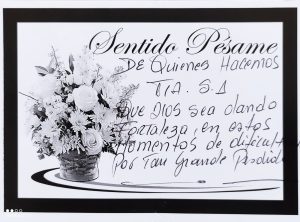 Sentido Pésame
DE Quienes Hacemos
TIA. S.A
Que DIOS sea dando
Fortaleza, en estos
Momentos de dificultad
Por Tan Grande Perdida